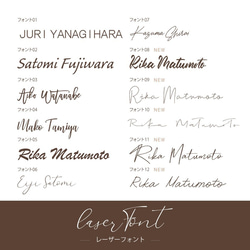 フォント01
JURI YANAGIHARA
フォント02
Satomi Fujiwara
フォント03
Aiko Watanabe
フォント04
Mako Tamiya
フォント05
Rika Matumoto
フォント06
Eiji Satomi
フォント07
Kazuma Ohira
フォント08 NEW
Rika Matumoto
フォント09 NEW
Rika Matumoto
フォント10 NEW
Rika Matumoto
フォント11 NEW
Rika Matumoto
フォント12 NEW
Rika Matumoto
laser font
レーザーフォント